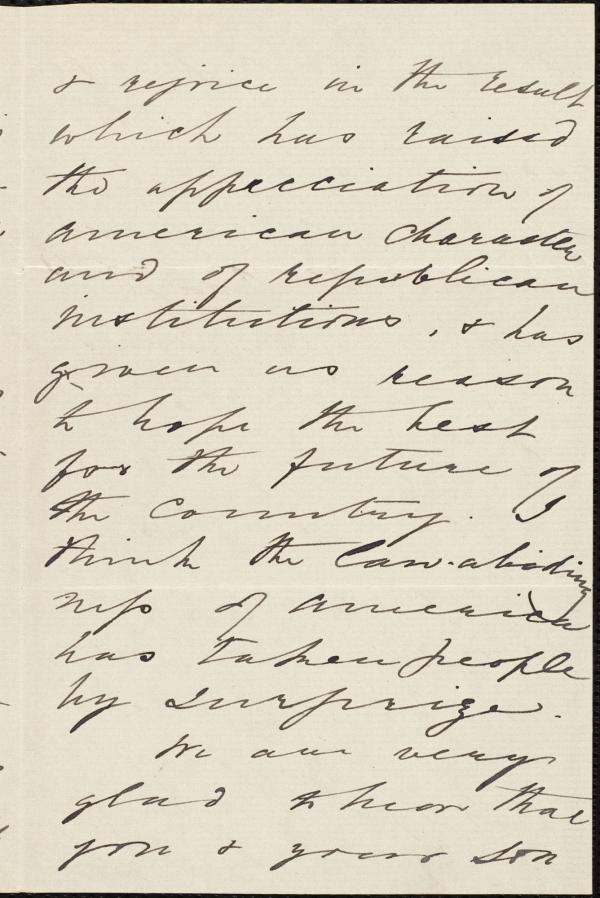 & rejoice in the result
which has raised
the appreciation of
american character
and of republican
institutions, & has
given us reason
to hope the best
for the future of
the country. I
think the law-abiding
ness of america
has taken people
by surprize.
We are very
glad to hear that
you & your son